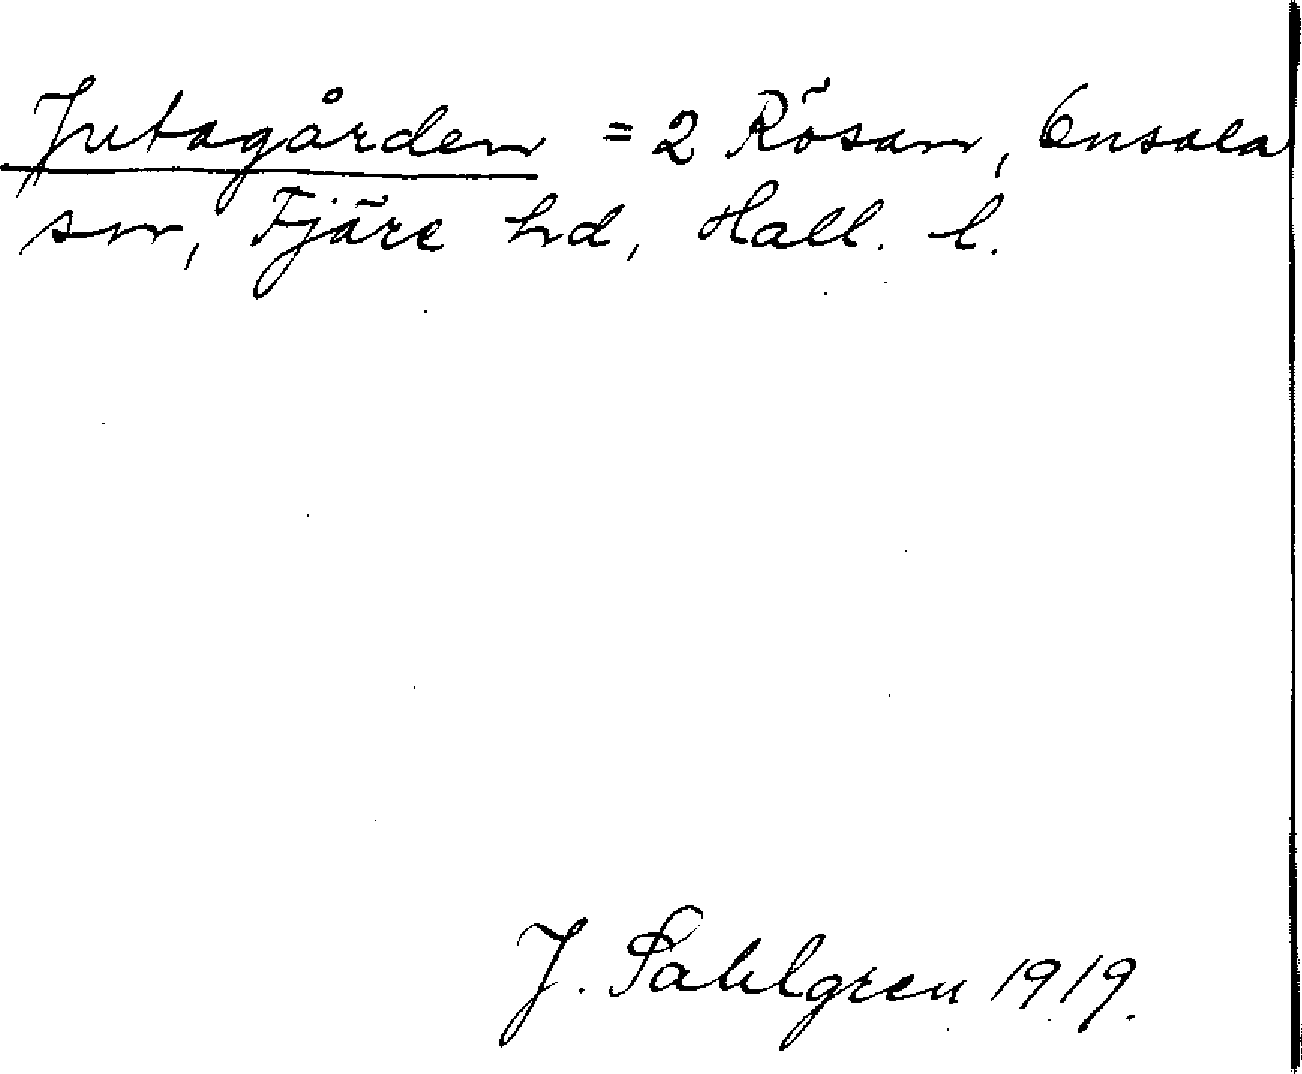 Jutagården = 2 Rösan, Onsala
sn, Fjäre hd, Hall. l.
J. Sahlgren 1919.